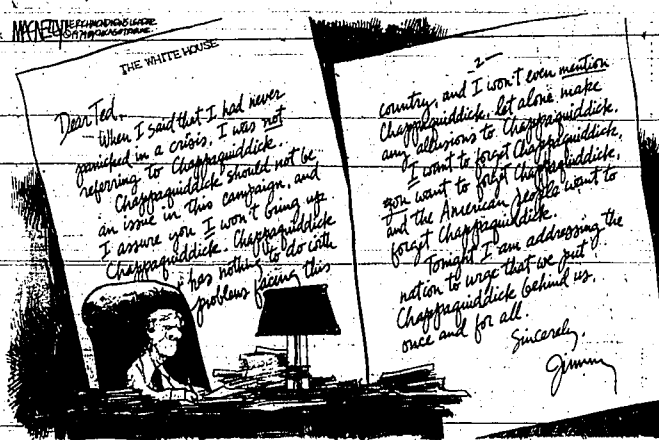 MACNELLY
THE WHITE HOUSE
Dear Ted,
When I said that I had never
panicked in a crisis, I was not
referring to Chappaquiddick.
Chappaquiddick should not be
an issue in this campaign, and
I assure you I won't bring up
Chappaquiddick. Chappaquiddick
has nothing to do with
problems facing this
-2-
country, and I won't even mention
Chappaquiddick, let alone make
any allusions to Chappaquiddick.
I want to forget Chappaquiddick,
you want to forget Chappaquiddick,
and the American people want to
forget Chappaquiddick.
Tonight I am addressing the
nation to urge that we put
Chappaquiddick behind us,
once and for all.
Sincerely,
Jimmy